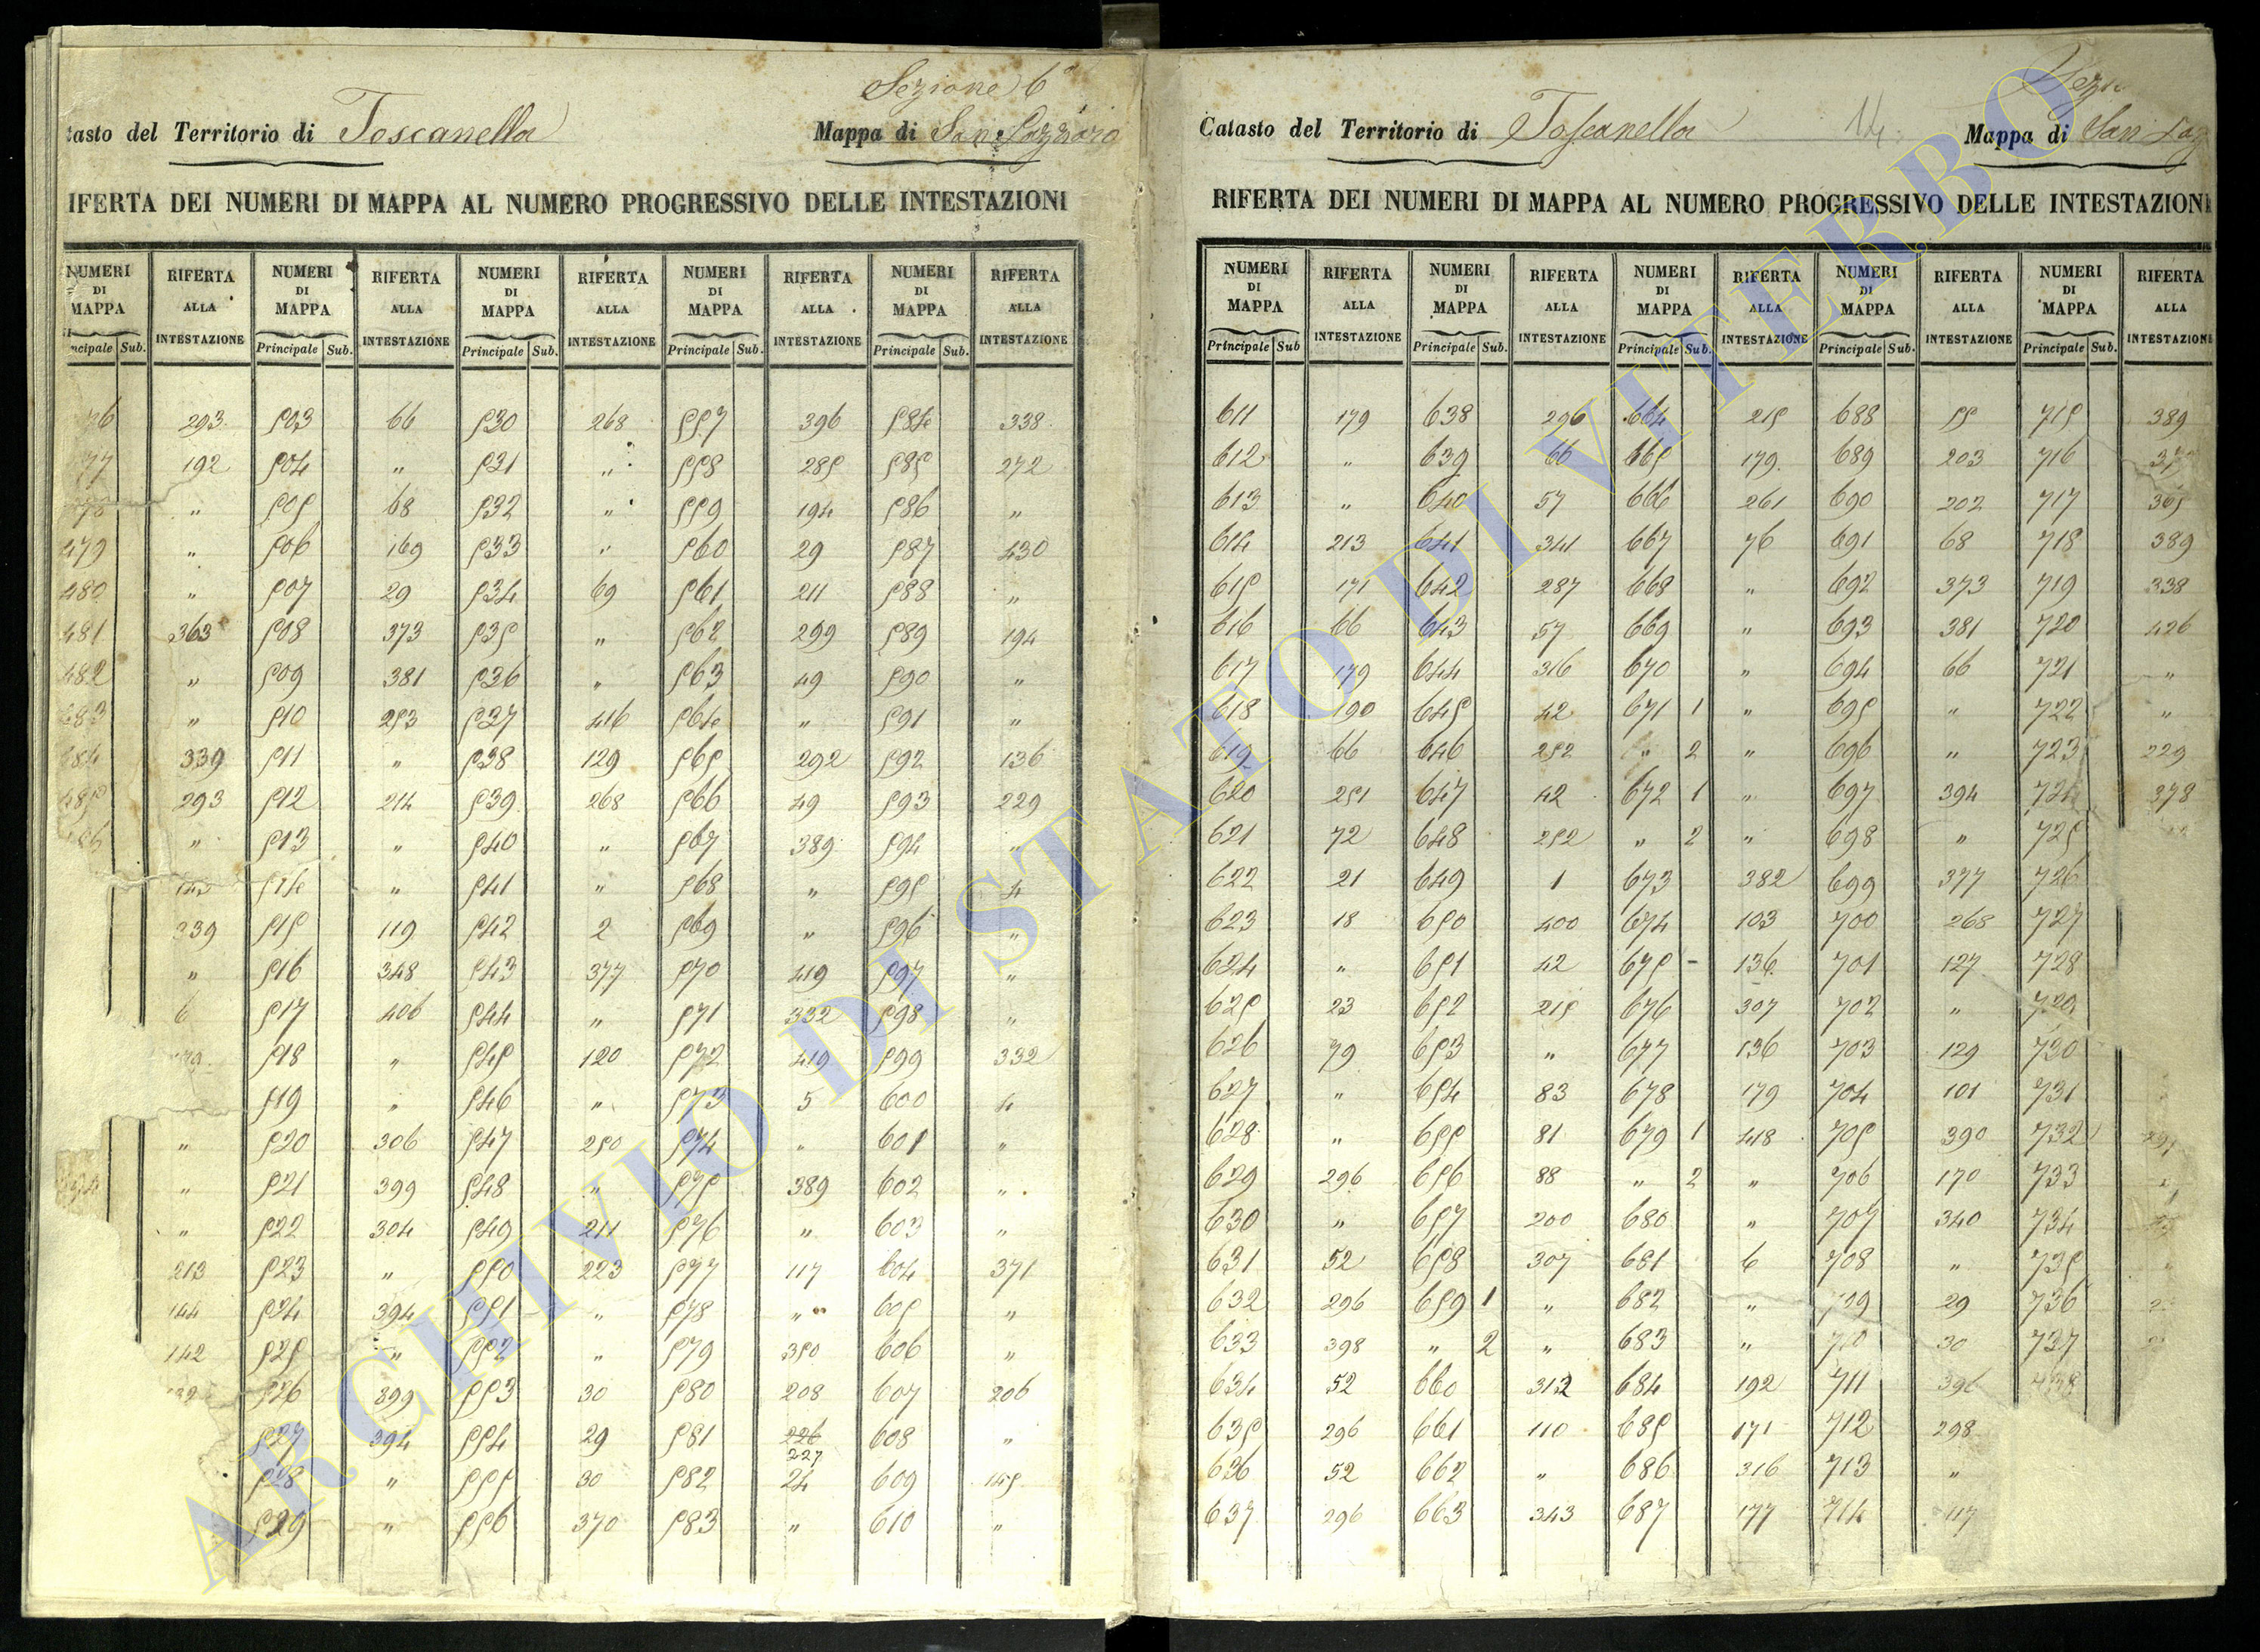 Sezione 6ª
tasto del Territorio di Toscanella Mappa di San Lazzaro
IFERTA DEI NUMERI DI MAPPA AL NUMERO PROGRESSIVO DELLE INTESTAZIONI
NUMERI RIFERTA NUMERI RIFERTA NUMERI RIFERTA NUMERI RIFERTA NUMERI RIFERTA
DI DI DI DI DI
MAPPA ALLA MAPPA ALLA MAPPA ALLA MAPPA ALLA MAPPA ALLA
ncipale Sub. INTESTAZIONE Principale Sub. INTESTAZIONE Principale Sub. INTESTAZIONE Principale Sub. INTESTAZIONE Principale Sub. INTESTAZIONE
293 503 66 530 268 557 396 584 338
77 192 504 " 531 " 558 285 585 272
" 505 68 532 " 559 194 586 "
479 " 506 169 533 " 560 29 587 430
480 " 507 29 534 69 561 211 588 "
481 363 508 373 535 " 562 299 589 194
482 " 509 381 536 " 563 49 590 "
483 " 510 253 537 416 564 " 591 "
484 339 511 " 538 129 565 292 592 136
485 293 512 214 539 268 566 49 593 229
" 513 " 540 " 567 389 594 "
514 " 541 " 568 " 595 4
339 515 119 542 2 569 " 596 "
" 516 348 543 377 570 419 597 "
6 517 406 544 " 571 332 598 "
518 " 545 120 572 419 599 332
519 " 546 " 573 5 600 4
" 520 306 547 250 574 " 601 "
" 521 399 548 " 575 389 602 "
" 522 304 549 211 576 " 603 "
213 523 " 550 223 577 117 604 371
144 524 394 551 " 578 " 605 "
142 525 " 552 " 579 350 606 "
526 399 553 30 580 208 607 206
527 394 554 29 581 226 608 "
227
528 " 555 30 582 24 609 145
529 " 556 370 583 " 610 "
14
Catasto del Territorio di Toscanella Mappa di San Laz
RIFERTA DEI NUMERI DI MAPPA AL NUMERO PROGRESSIVO DELLE INTESTAZIONI
NUMERI RIFERTA NUMERI RIFERTA NUMERI RIFERTA NUMERI RIFERTA NUMERI RIFERTA
DI DI DI DI DI
MAPPA ALLA MAPPA ALLA MAPPA ALLA MAPPA ALLA MAPPA ALLA
Principale Sub INTESTAZIONE Principale Sub. INTESTAZIONE Principale Sub. INTESTAZIONE Principale Sub. INTESTAZIONE Principale Sub. INTESTAZIONE
611 179 638 296 664 215 688 55 715 389
612 " 639 66 665 179 689 203 716
613 " 640 57 666 261 690 202 717 305
614 213 641 341 667 76 691 68 718 389
615 171 642 287 668 " 692 373 719 338
616 66 643 57 669 " 693 381 720 426
617 179 644 316 670 " 694 66 721 "
618 190 645 42 671 1 " 695 " 722 "
619 66 646 252 " 2 " 696 " 723 229
620 251 647 42 672 1 " 697 394 724 378
621 72 648 252 " 2 " 698 " 725
622 21 649 1 673 382 699 377 726
623 18 650 400 674 103 700 268 727
624 " 651 42 675 - 136 701 127 728
625 23 652 215 676 307 702 " 729
626 79 653 " 677 136 703 129 730
627 " 654 83 678 179 704 101 731
628 " 655 81 679 1 418 705 390 732
629 296 656 88 " 2 " 706 170 733
630 " 657 200 680 " 707 340 734
631 52 658 307 681 6 708 " 735
632 296 659 1 " 682 " 709 29 736
633 398 " 2 " 683 " 710 30 737
634 52 660 312 684 192 711 396 738
635 296 661 110 685 171 712 298
636 52 662 " 686 316 713 "
637 296 663 343 687 177 714 117
ARCHIVIO DI STATO DI VITERBO